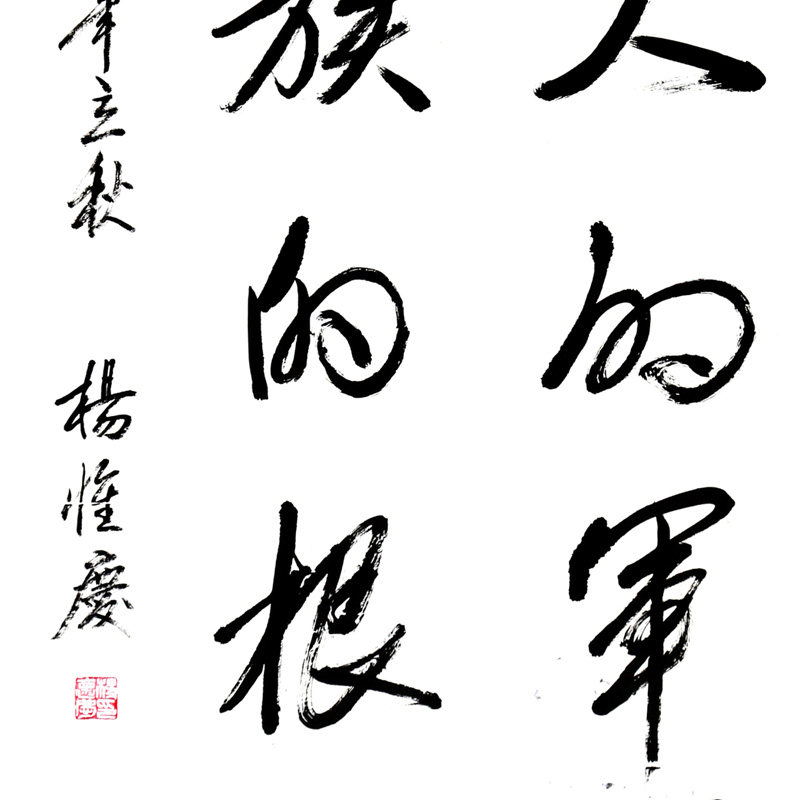 人的軍
族的根
年立秋 楊惟慶